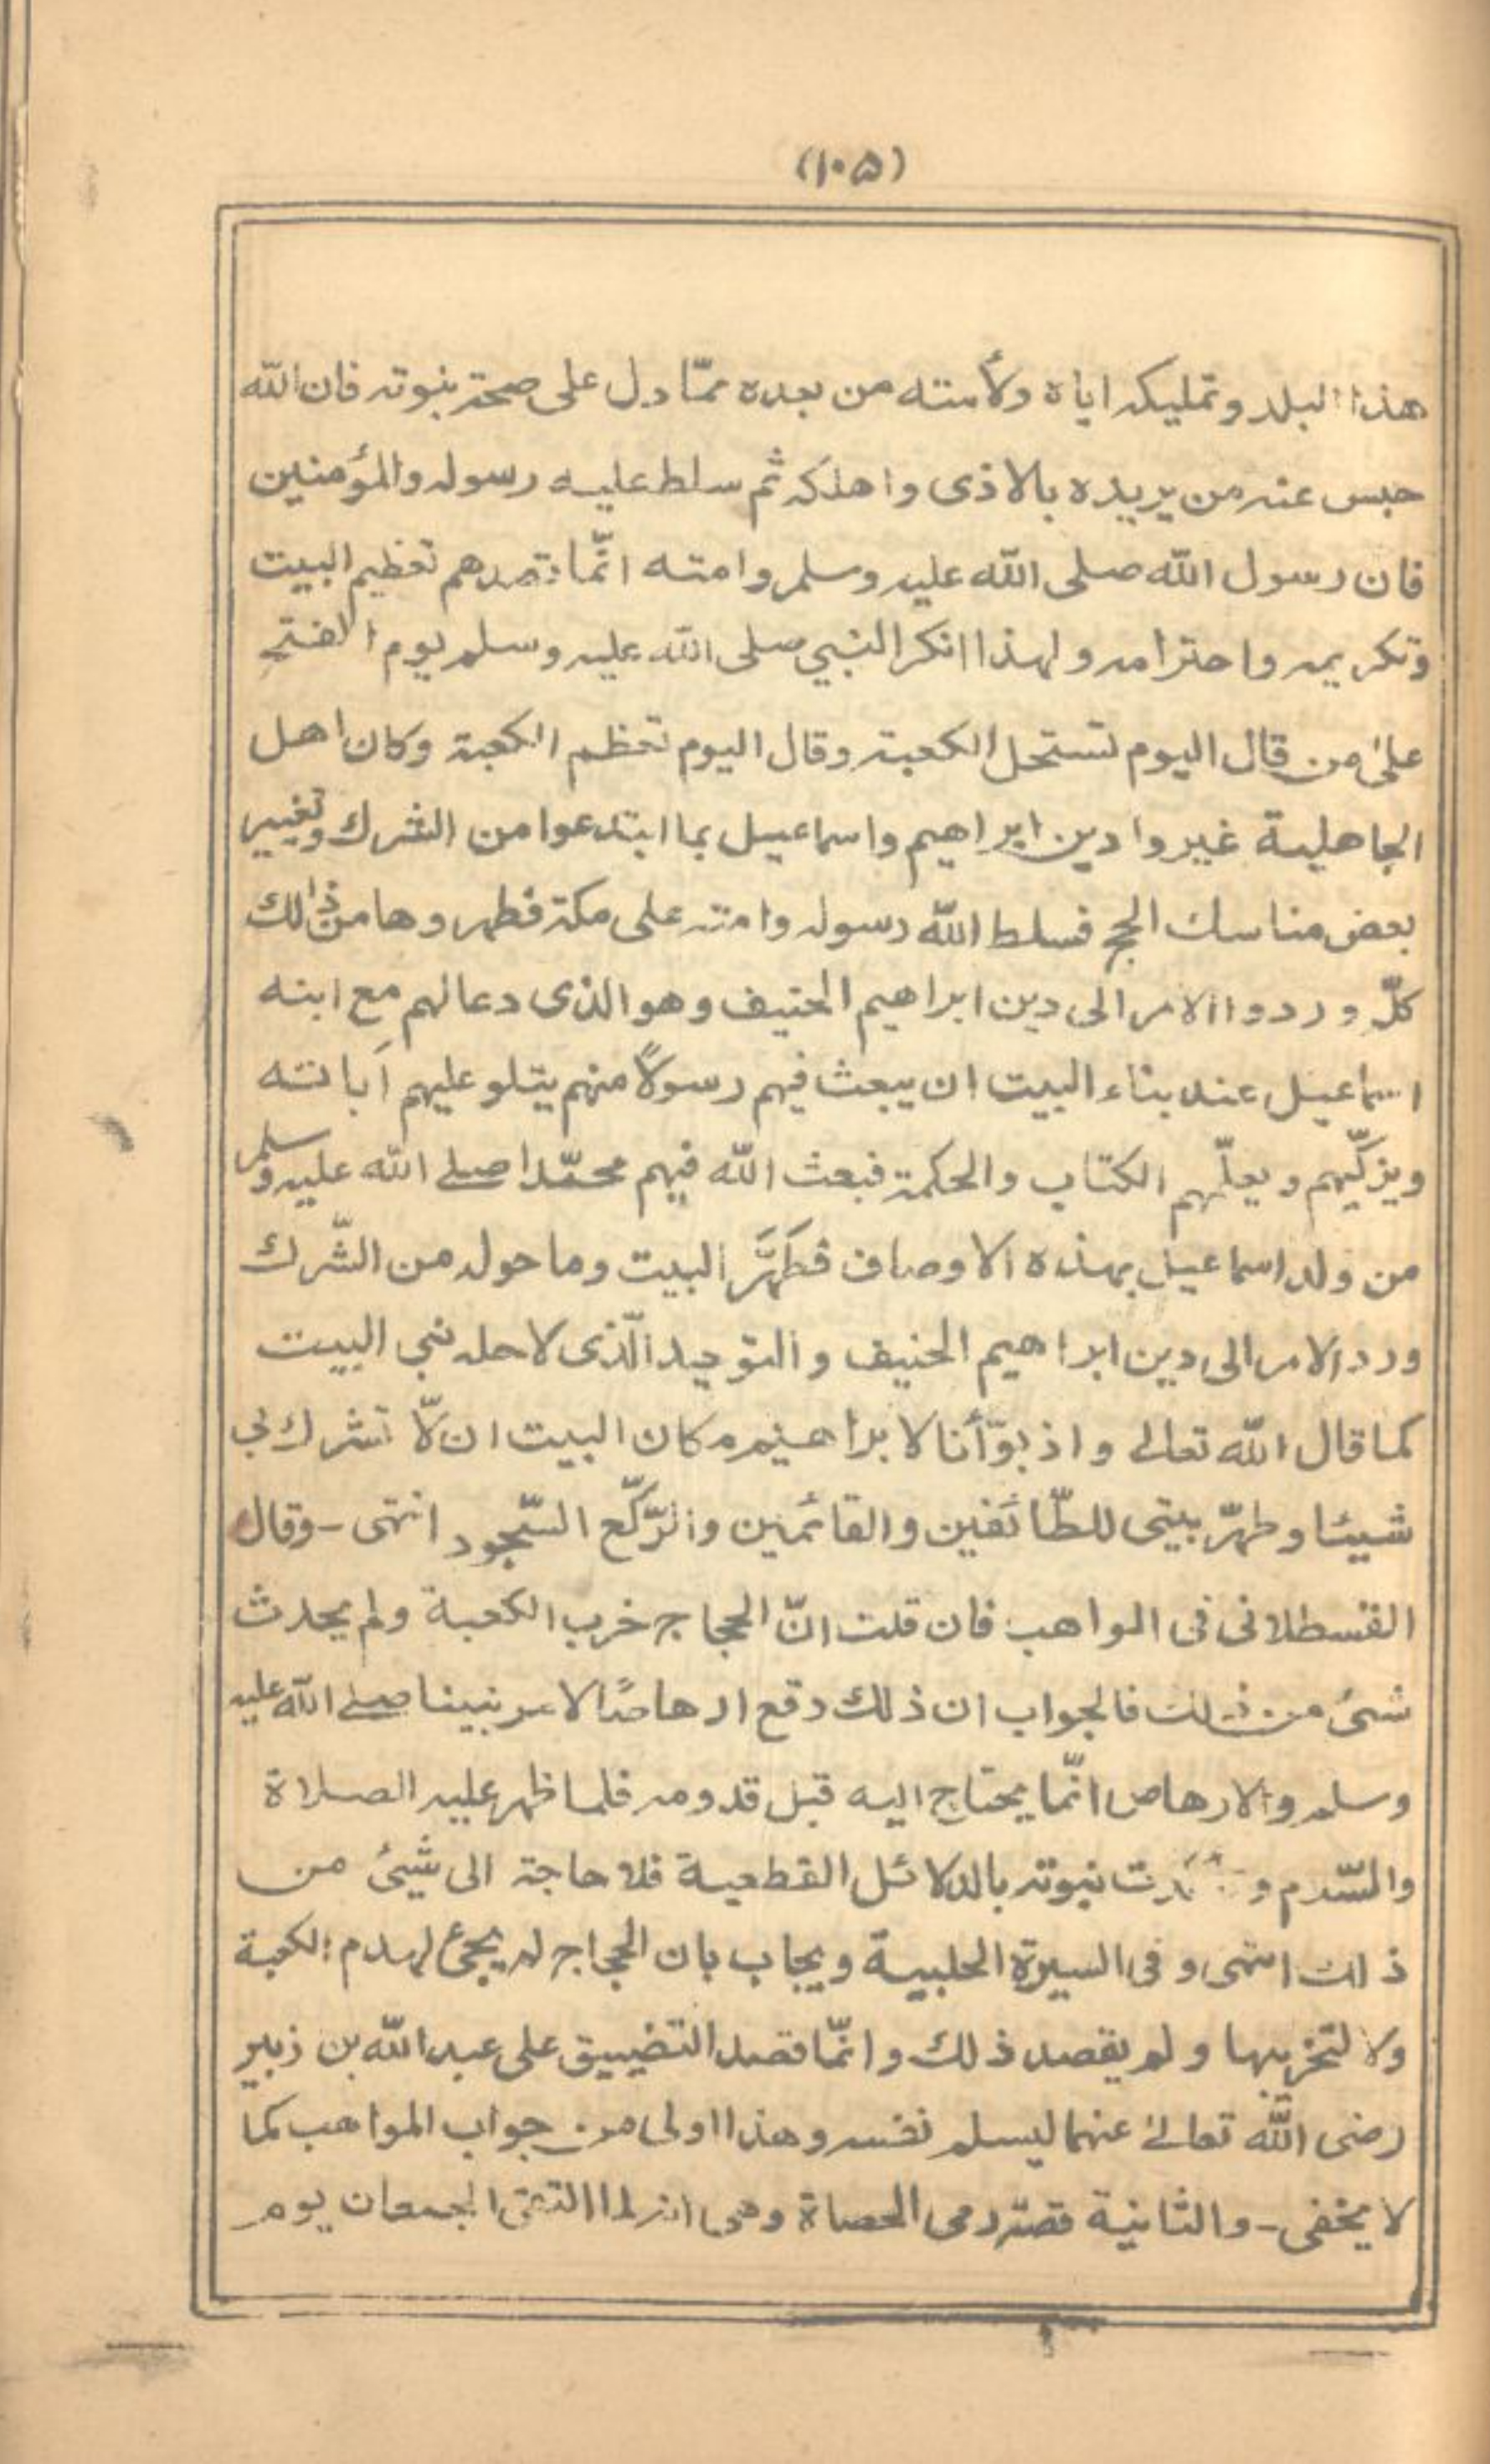 (١٠۵)
هذا البلد وتمليكه اياه ولأمته من بعده ممّا دل على صحة نبوته فان الله
حبس عنه من يريده بالاذى واهلكه ثم سلط عليه رسوله والمؤمنين
فان رسول الله صلى الله عليه وسلم وامته انّما قصدهم تعظيم البيت
وتكريمه واحترامه ولهذا انكر النبي صلى الله عليه وسلم يوم الفتح
على من قال اليوم تستحل الكعبة وقال اليوم تعظم الكعبة وكان اهل
الجاهلية غيروا دين ابراهيم واسماعيل بما ابتدعوا من الشرك وتغيير
بعض مناسك الحج فسلط الله رسوله وامته على مكة فطهروها من ذالك
كلّه وردوا الامر الى دين ابراهيم الحنيف وهو الذى دعا لهم مع ابنه
اسماعيل عند بناء البيت ان يبعث فيهم رسولاً منهم يتلو عليهم آياته
ويزكّيهم ويعلّمهم الكتاب والحكمة فبعث الله فيهم محمّدا صلے الله عليه وسلم
من ولد اسماعيل بهذه الاوصاف فطَهَّرَ البيت وما حوله من الشّرك
ورد الامر الى دين ابراهيم الحنيف والتوحيد الّذى لاجله بنى البيت
كما قال الله تعالى واذ بوّأنا لابراهيم مكان البيت ان لّا تشرك بى
شيئا وطهّر بيتى للطّائفين والقائمين والرّكّع السّجود انتهى - وقال
القسطلانى فى المواهب فان قلت انّ الحجاج خرب الكعبة ولم يحدث
شئ من ذلك فالجواب ان ذلك وقع ارهاصًا لامر نبينا صلے الله عليه
وسلم والارهاص انّما يحتاج اليه قبل قدومه فلما ظهر عليه الصلاة
والسّلام و تأكدت نبوته بالدلائل القطعية فلا حاجة الى شيئ من
ذلك انتهى وفى السيرة الحلبية ويجاب بان الحجاج لم يجئ لهدم الكعبة
ولا لتخريبها ولم يقصد ذلك وانّما قصد التضييق على عبد الله بن زبير
رضى الله تعالىٰ عنهما ليسلم نفسه وهذا اولى من جواب المواهب كما
لا يخفى - والثانية قصّة رمى الحصاة وهى انه لما التقى الجمعان يوم